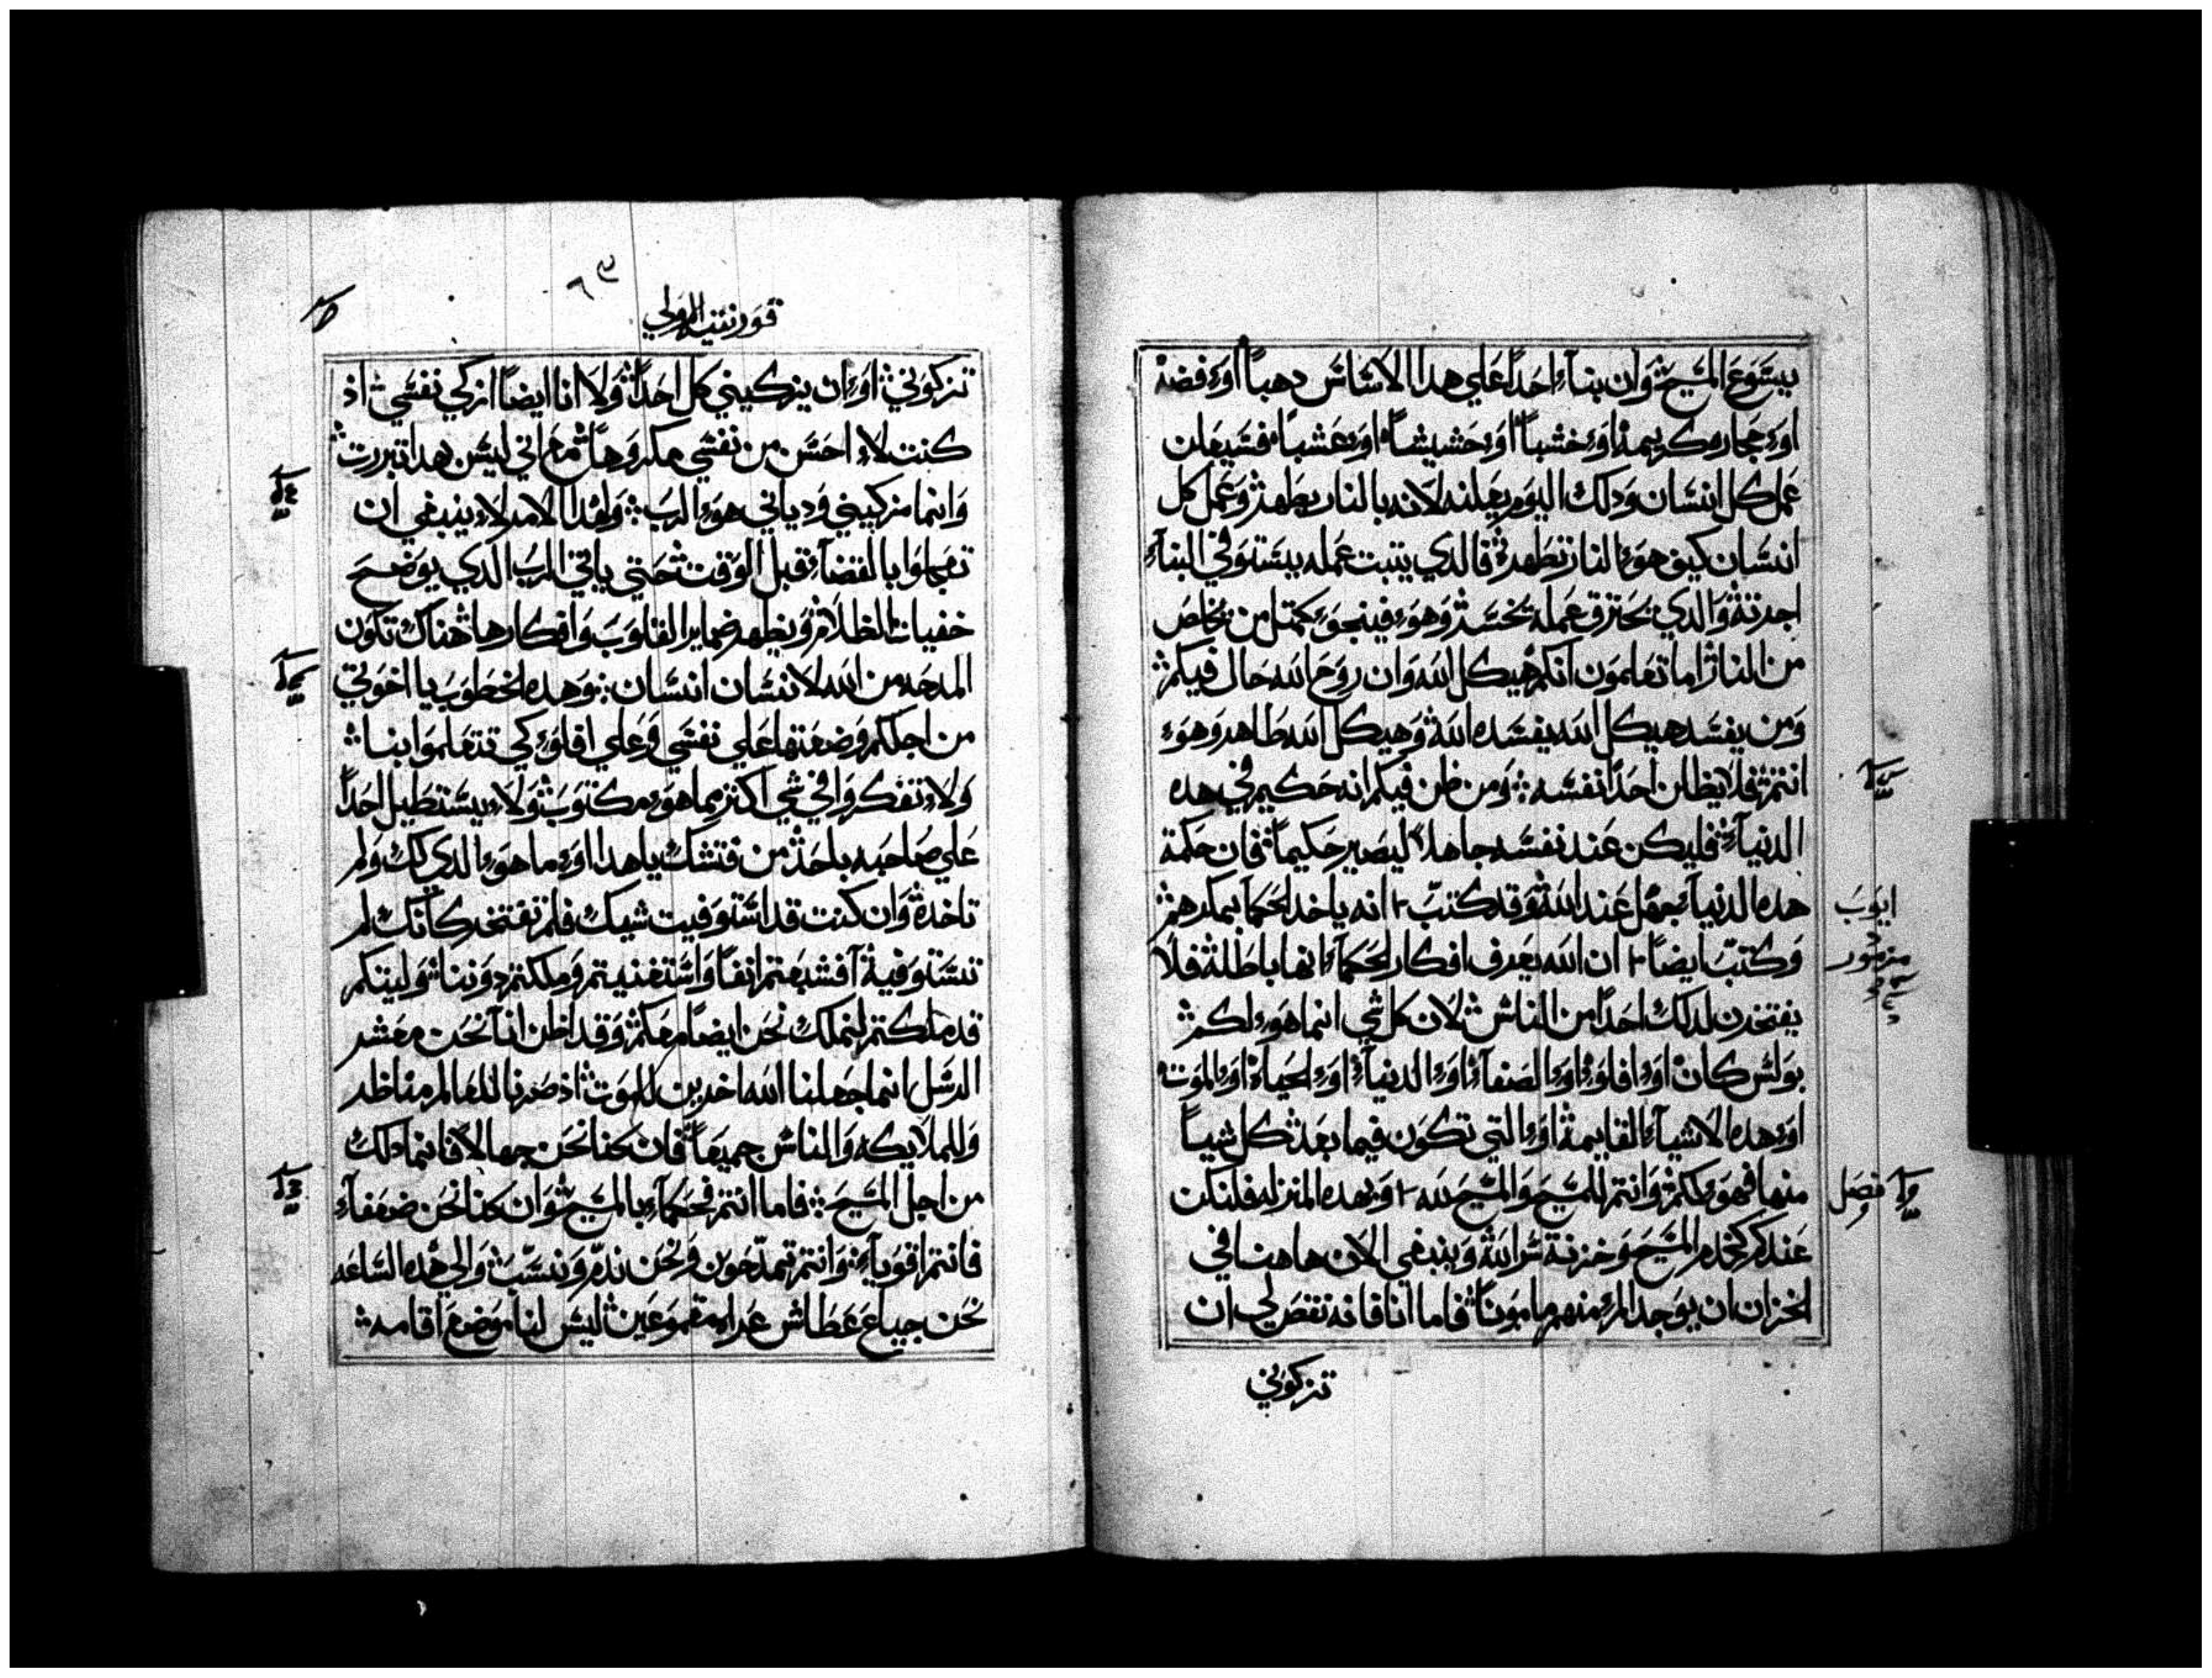 يسَوعَ المسَيحَ وَان بناء احَداً عَلي هدا الاسَاسَ دهباً اوَء فضة
اوَء حجاره كريمة اوَء خشباً اوَء حَشيشاً اوَء عَشباً فسَيعَلن
عَمل كل انسَان وَدلك اليوَم يعَلنه لانه بالنار يظهر وَعَمل كل
انسَان كيف هوَء النار تظهره فالدي يتبت عَمله يسَتوَفي البناء
اجرته وَالدي يحَترق عَمله يخسَر وَهوَء فينجوَء كمتل من يخلص
من النار اما تعَلموَن انكم هيكل الله وَان روَحَ الله حَال فيكم
وَمن يفسَد هيكل الله يفسَده الله وَهيكل الله طاهر وَهوَء
انتم فلا يظلن احَداً نفسَه وَمن ظن فيكم انه حَكيم في هده
الدنياء فليكن عَند نفسَه جاهلاً ليصَير حَكيماً فان حَكمة
هده الدنياء جهل عَند الله وَقد كتبَ انه ياخد الحَكماء بمكرهم
وَكتبَ ايضاً ان الله يعَرف افكار الحَكماء انها باطلة فلا
يفتخرن لدلك احَداً من الناسَ لان كل شي انما هوَء لكم
بوَلسَ كان اوَء افلوَء اوَء الصَفاء اوَء الدنياء اوَء الحَياة اوَء الموَت
اوَء هده الاشياء القايمة اوَء التي تكوَن فيما بعَد كل شياً
منها فهوَء لكم وَانتم للمسَيحَ وَالمسَيحَ لله وَبهده المنزله فلنكن
عَندكم كخدم المسَيحَ وَخزنة سَر الله وَينبغي الان هاهنا في
الخزان ان يوَجد المرء منهم ماموَناً فاما انا فانه نقصَ لي ان
تزكوَني
ايوَبَ
مزموَر
فصَل
قوَرنتيه الاوَلي
تزكوَني اوَء ان يزكيني كل احَداً وَلا انا ايضاً ازكي نفسَي اذ
كنت لاء احسَ من نفسَي مكروَهاً معَ اني ليسَ بهدا تبررت
وَانما مزكيني وَدياني هوَء الربَ وَلهدا الامر لاء ينبغي ان
تعَجلوَا بالقضاء قبل الوَقت حَتي ياتي الربَ الدي يوَضحَ
خفيات الظلام وَيظهر ضماير القلوَبَ وَافكارها هناك تكوَن
المدحَه من الله لانسَان انسَان وَهده الخطوَبَ يا اخوَتي
من اجلكم وَضعَتها عَلي نفسَي وَعَلي افلوَء كي تتعَلموَا بنا
وَلاء تفكروَا في شي اكتر مما هوَء مكتوَبَ وَلاء يسَتطيل احَداً
عَلي صَاحبه باحَد من فتشك يا هدا اوَء ما هوَء الدي لك وَلم
تاخده وَان كنت قد اسَتوَفيت شيك فلم تفتخر كانك لم
تسَتوَفيه افشبعَتم انفاً وَاسَتغنيتم وَملكتم دوَننا وَليتكم
قد ملكتم لنملك نحَن ايضاً معَكم وَقد اظن اننا نحَن معَشر
الرسَل انما جعَلنا الله اخرين للموَت اذ صَرنا للعَالم مناظر
وَللملايكه وَالناسَ جميعَاً فان كنا نحَن جهالاً فانما دلك
من اجل المسَيحَ فاما انتم فحَكماء بالمسَيحَ وَان كنا نحَن ضعَفاء
فانتم اقوَياء وَانتم تمدّحَوَن وَنحَن ندمّ وَنسَّبَ وَالي هده السَاعَه
نحَن جياعَ عَطاش عَراء مقموَعَين ليسَ لنا موَضعَ اقامه